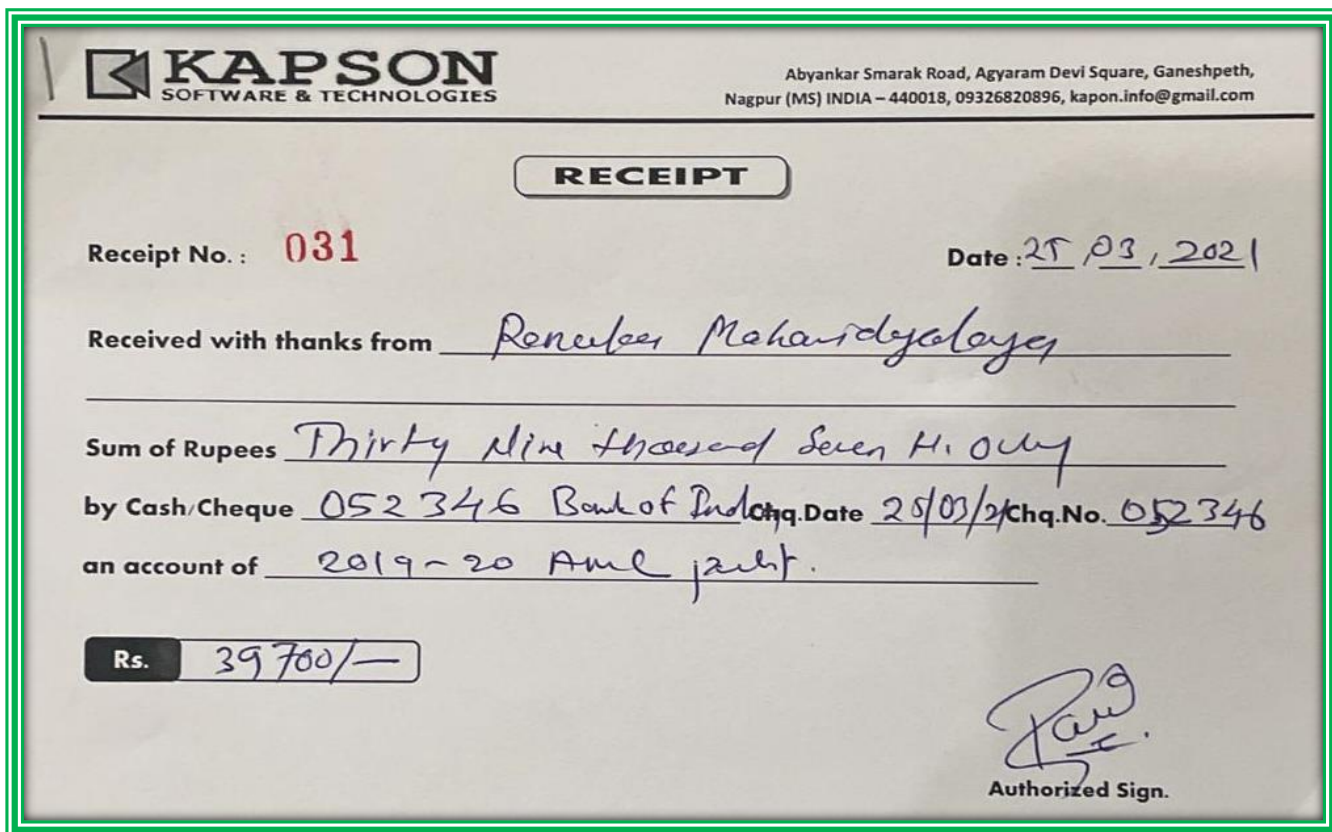 KAPSON
SOFTWARE & TECHNOLOGIES
Abyankar Smarak Road, Agyaram Devi Square, Ganeshpeth,
Nagpur (MS) INDIA – 440018, 09326820896, kapon.info@gmail.com
RECEIPT
Receipt No. : 031
Date : 25, 03, 2021
Received with thanks from Renuka Mahavidyalaya
Sum of Rupees Thirty Nine thousand Seven H. only
by Cash/Cheque 052346 Bank of Chq.Date 25/03/21 Chq.No. 052346
an account of 2019-20
Rs. 39700/-
Authorized Sign.